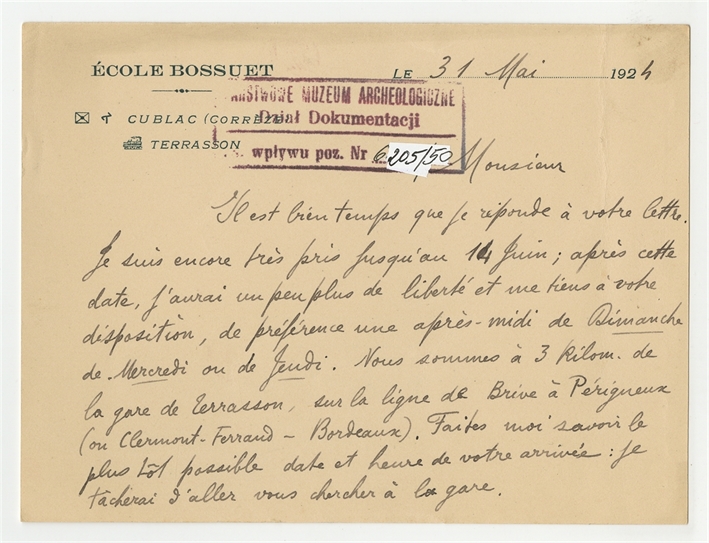 ÉCOLE BOSSUET
LE 31 Mai 1924
CUBLAC (CORRÈZE)
TERRASSON
PAŃSTWOWE MUZEUM ARCHEOLOGICZNE
Dział Dokumentacji
wpływu poz. Nr 6205/50
Monsieur
Il est bien temps que je réponde à votre lettre.
Je suis encore très pris jusqu'au 14 Juin ; après cette
date, j'aurai un peu plus de liberté et me tiens à votre
disposition, de préférence une après-midi de Dimanche
de Mercredi ou de Jeudi. Nous sommes à 3 kilom. de
la gare de Terrasson, sur la ligne de Brive à Périgueux
(ou Clermont-Ferrand – Bordeaux). Faites moi savoir le
plus tôt possible date et heure de votre arrivée : je
tâcherai d'aller vous chercher à la gare.